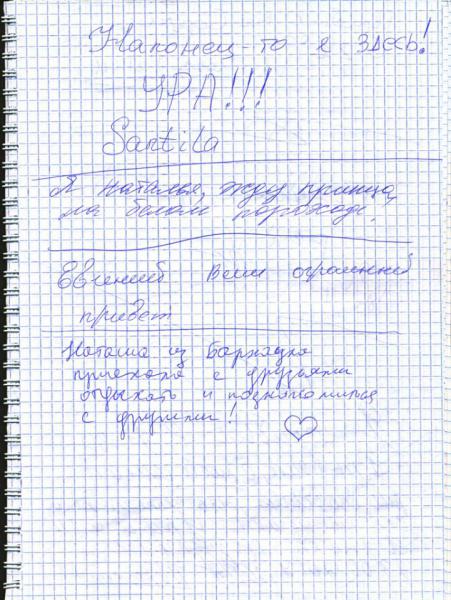 Наконец-то я здесь!
УРА!!!
Santila
Я Наталья, жду принца
на белом пароходе!
Евгений Всем огромный
привет
Наташа из Барнаула
приехала с друзьями
отдыхать и познакомиться
с другими!